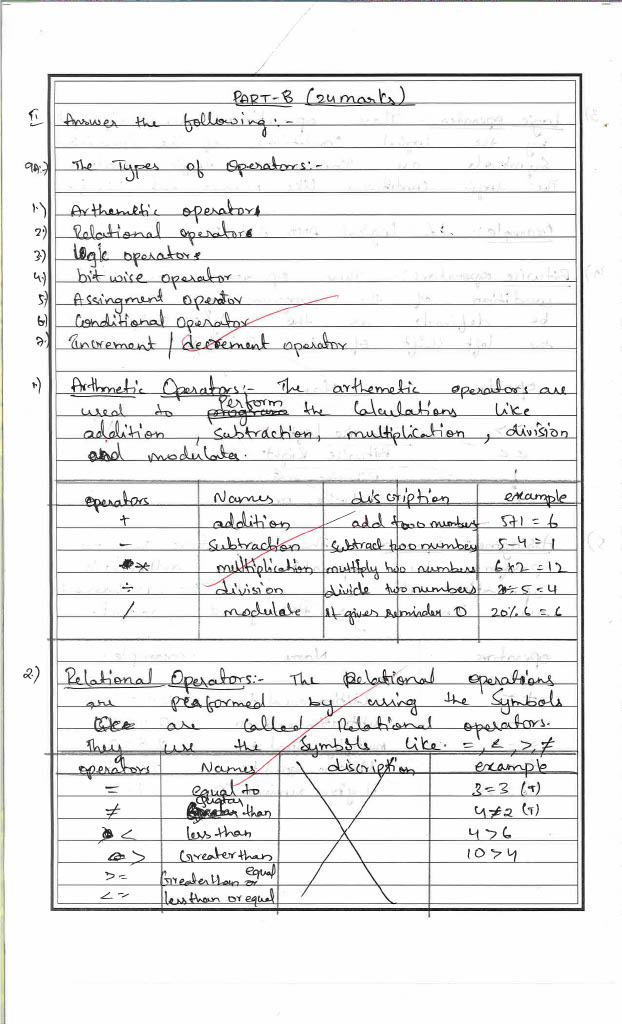 PART-B (24 marks)
II Answer the following :-
9A.) The Types of Operators:-
1.) Arthemetic operators
2) Relational operators
3) logic operators
4) bit wise operator
5) Assingment operator
6) Conditional Operator
7.) increment / decrement operator
1) Arthmetic Operators:- The arthemetic operators are
used to Perform the Calculations like
addition , Subtraction, multiplication , division
and modulate.
operators Names discription example
+ addition add two numbers 5+1 = 6
- Subtraction Subtract two number 5-4 = 1
* multiplication multiply two numbers 6*2 = 12
÷ division divide two numbers ÷ 5 = 4
/ modulate It gives reminder 0 20% 6 = 6
2) Relational Operators:- The Relational operations
are Performed by using the Symbols
are Called Relational operators.
They use the Symbols like. =, <, >, ≠
operators Names discription example
= equal to 3=3 (T)
≠ than 4≠2 (T)
< less than 4>6
> Greater than 10>4
>= Greater than or equal
<= less than or equal